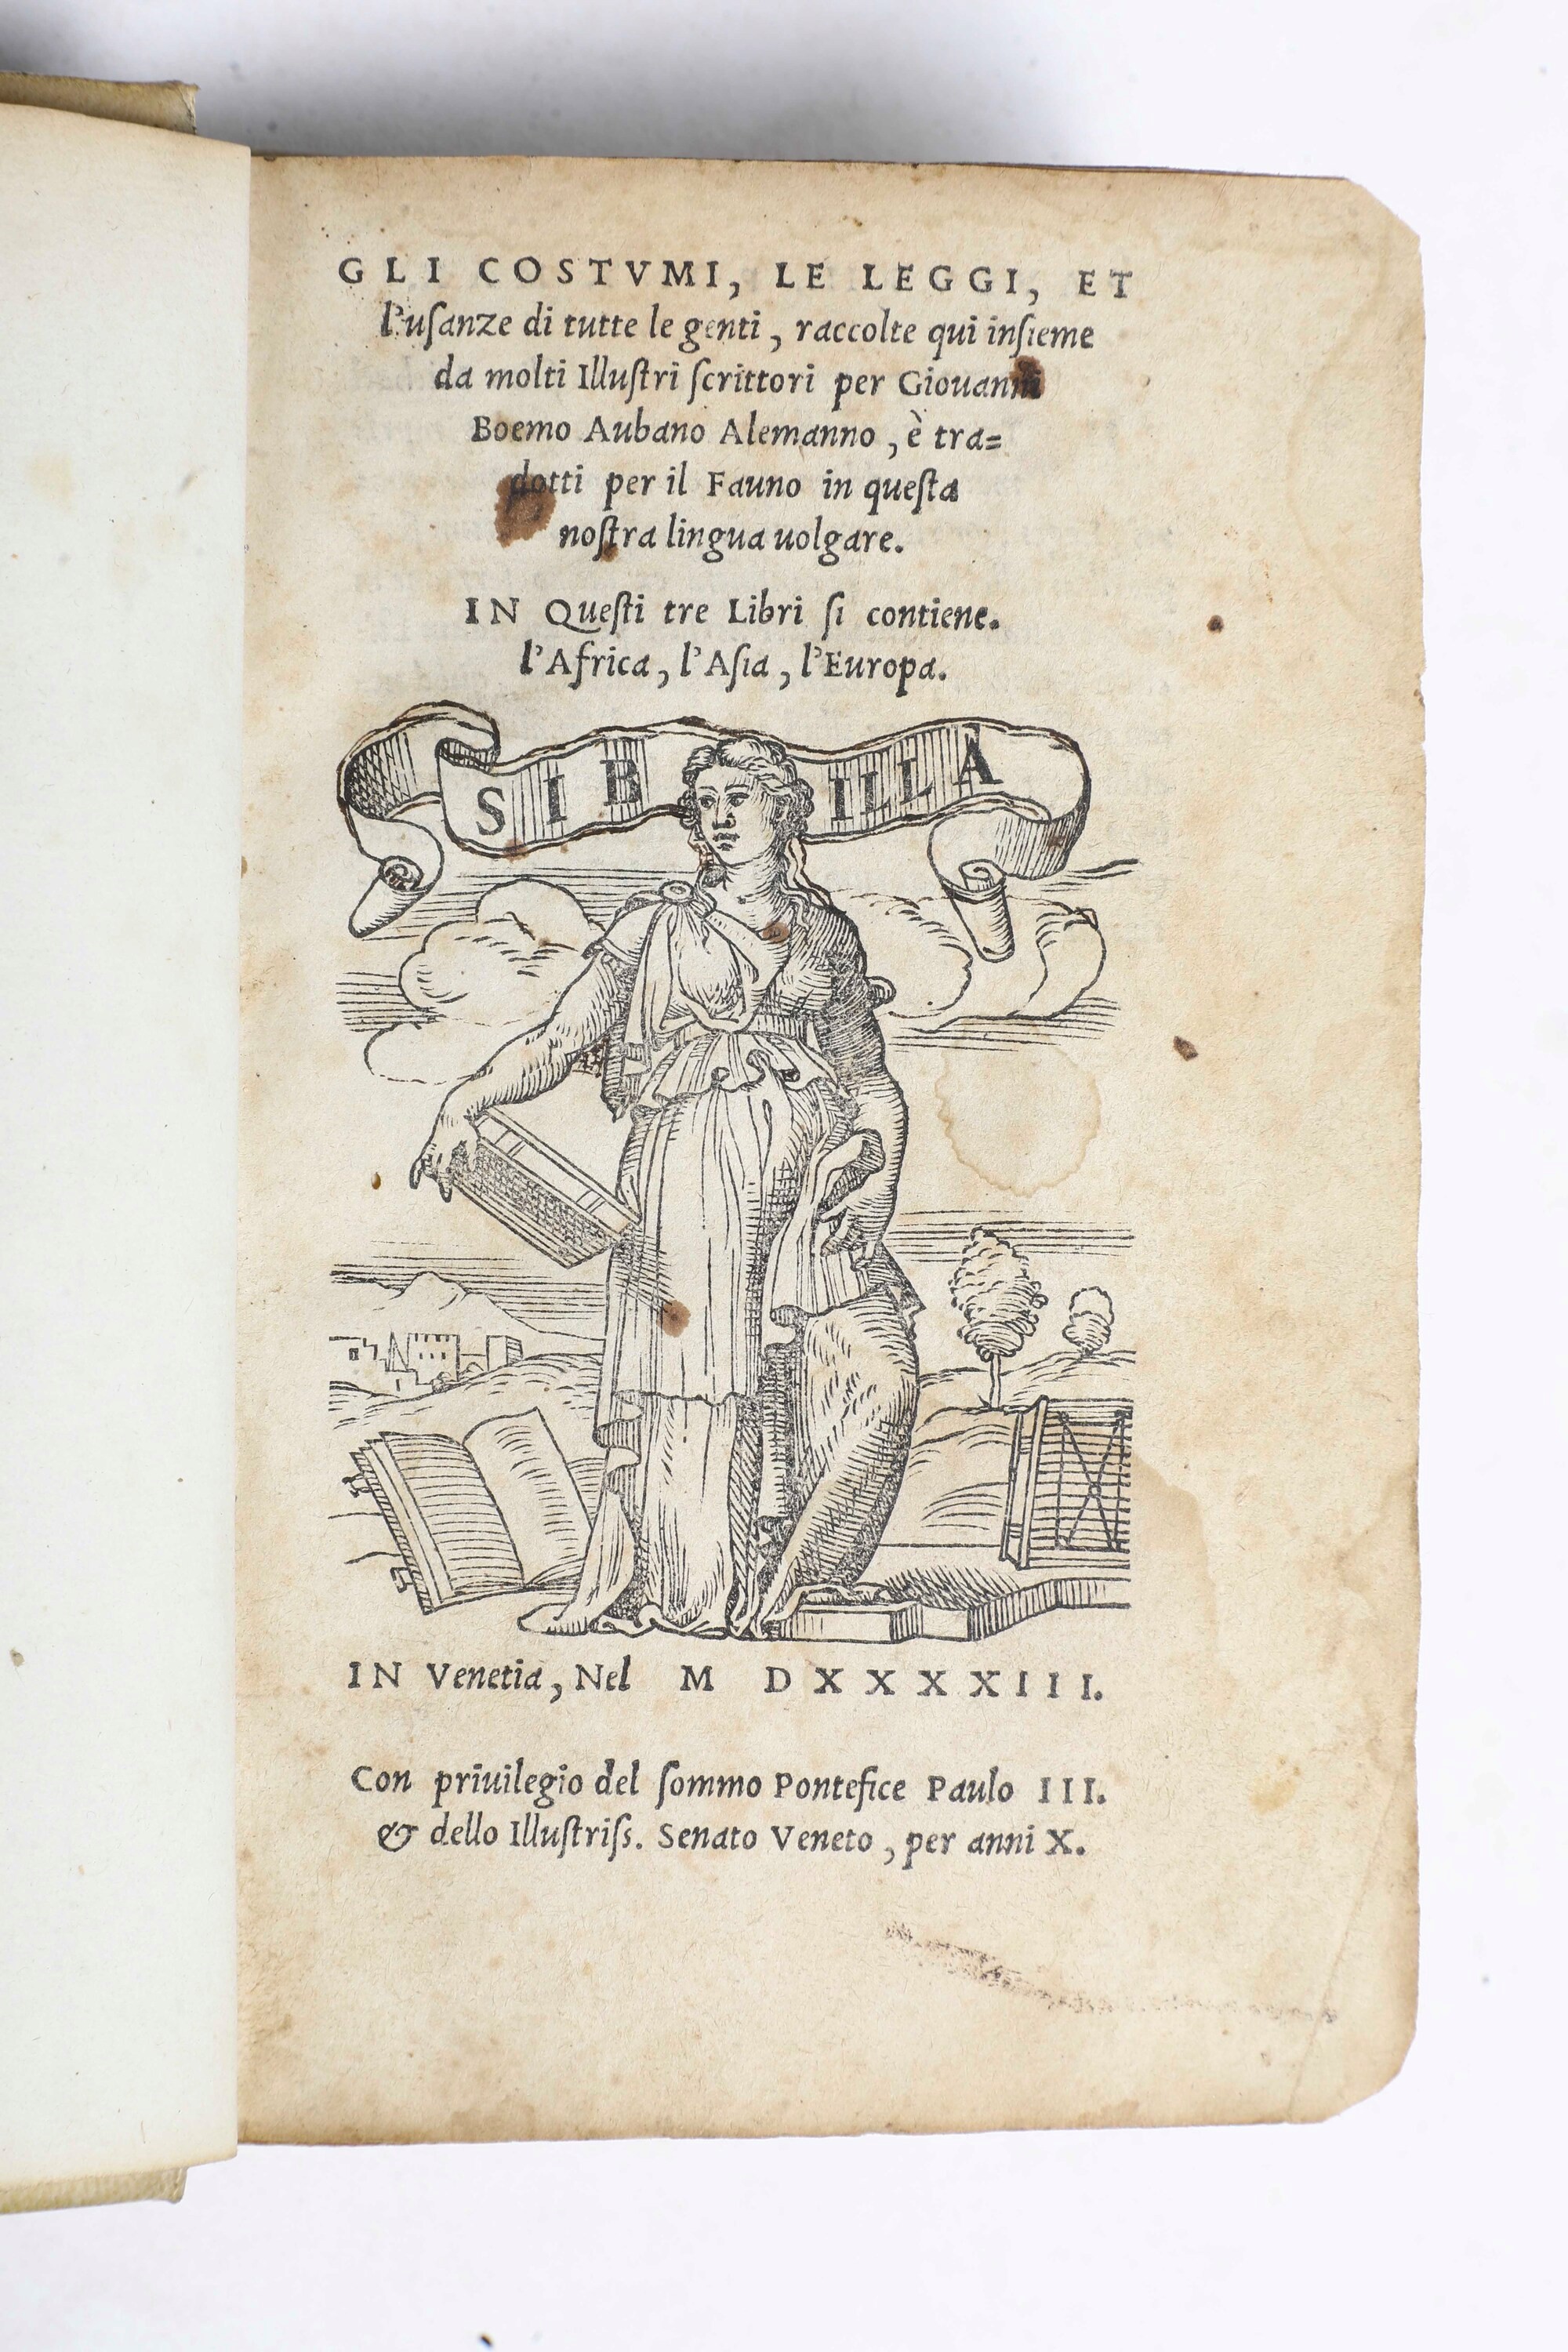 GLI COSTVMI, LE LEGGI, ET
l'uſanze di tutte le genti, raccolte qui inſieme
da molti Illuſtri ſcrittori per Giouanni
Boemo Aubano Alemanno, è tra=
dotti per il Fauno in queſta
noſtra lingua uolgare.
IN Queſti tre Libri ſi contiene.
l'Africa, l'Aſia, l'Europa.
SIBILLA
IN Venetia, Nel M DXXXXIII.
Con priuilegio del ſommo Pontefice Paulo III.
& dello Illuſtriſs. Senato Veneto, per anni X.